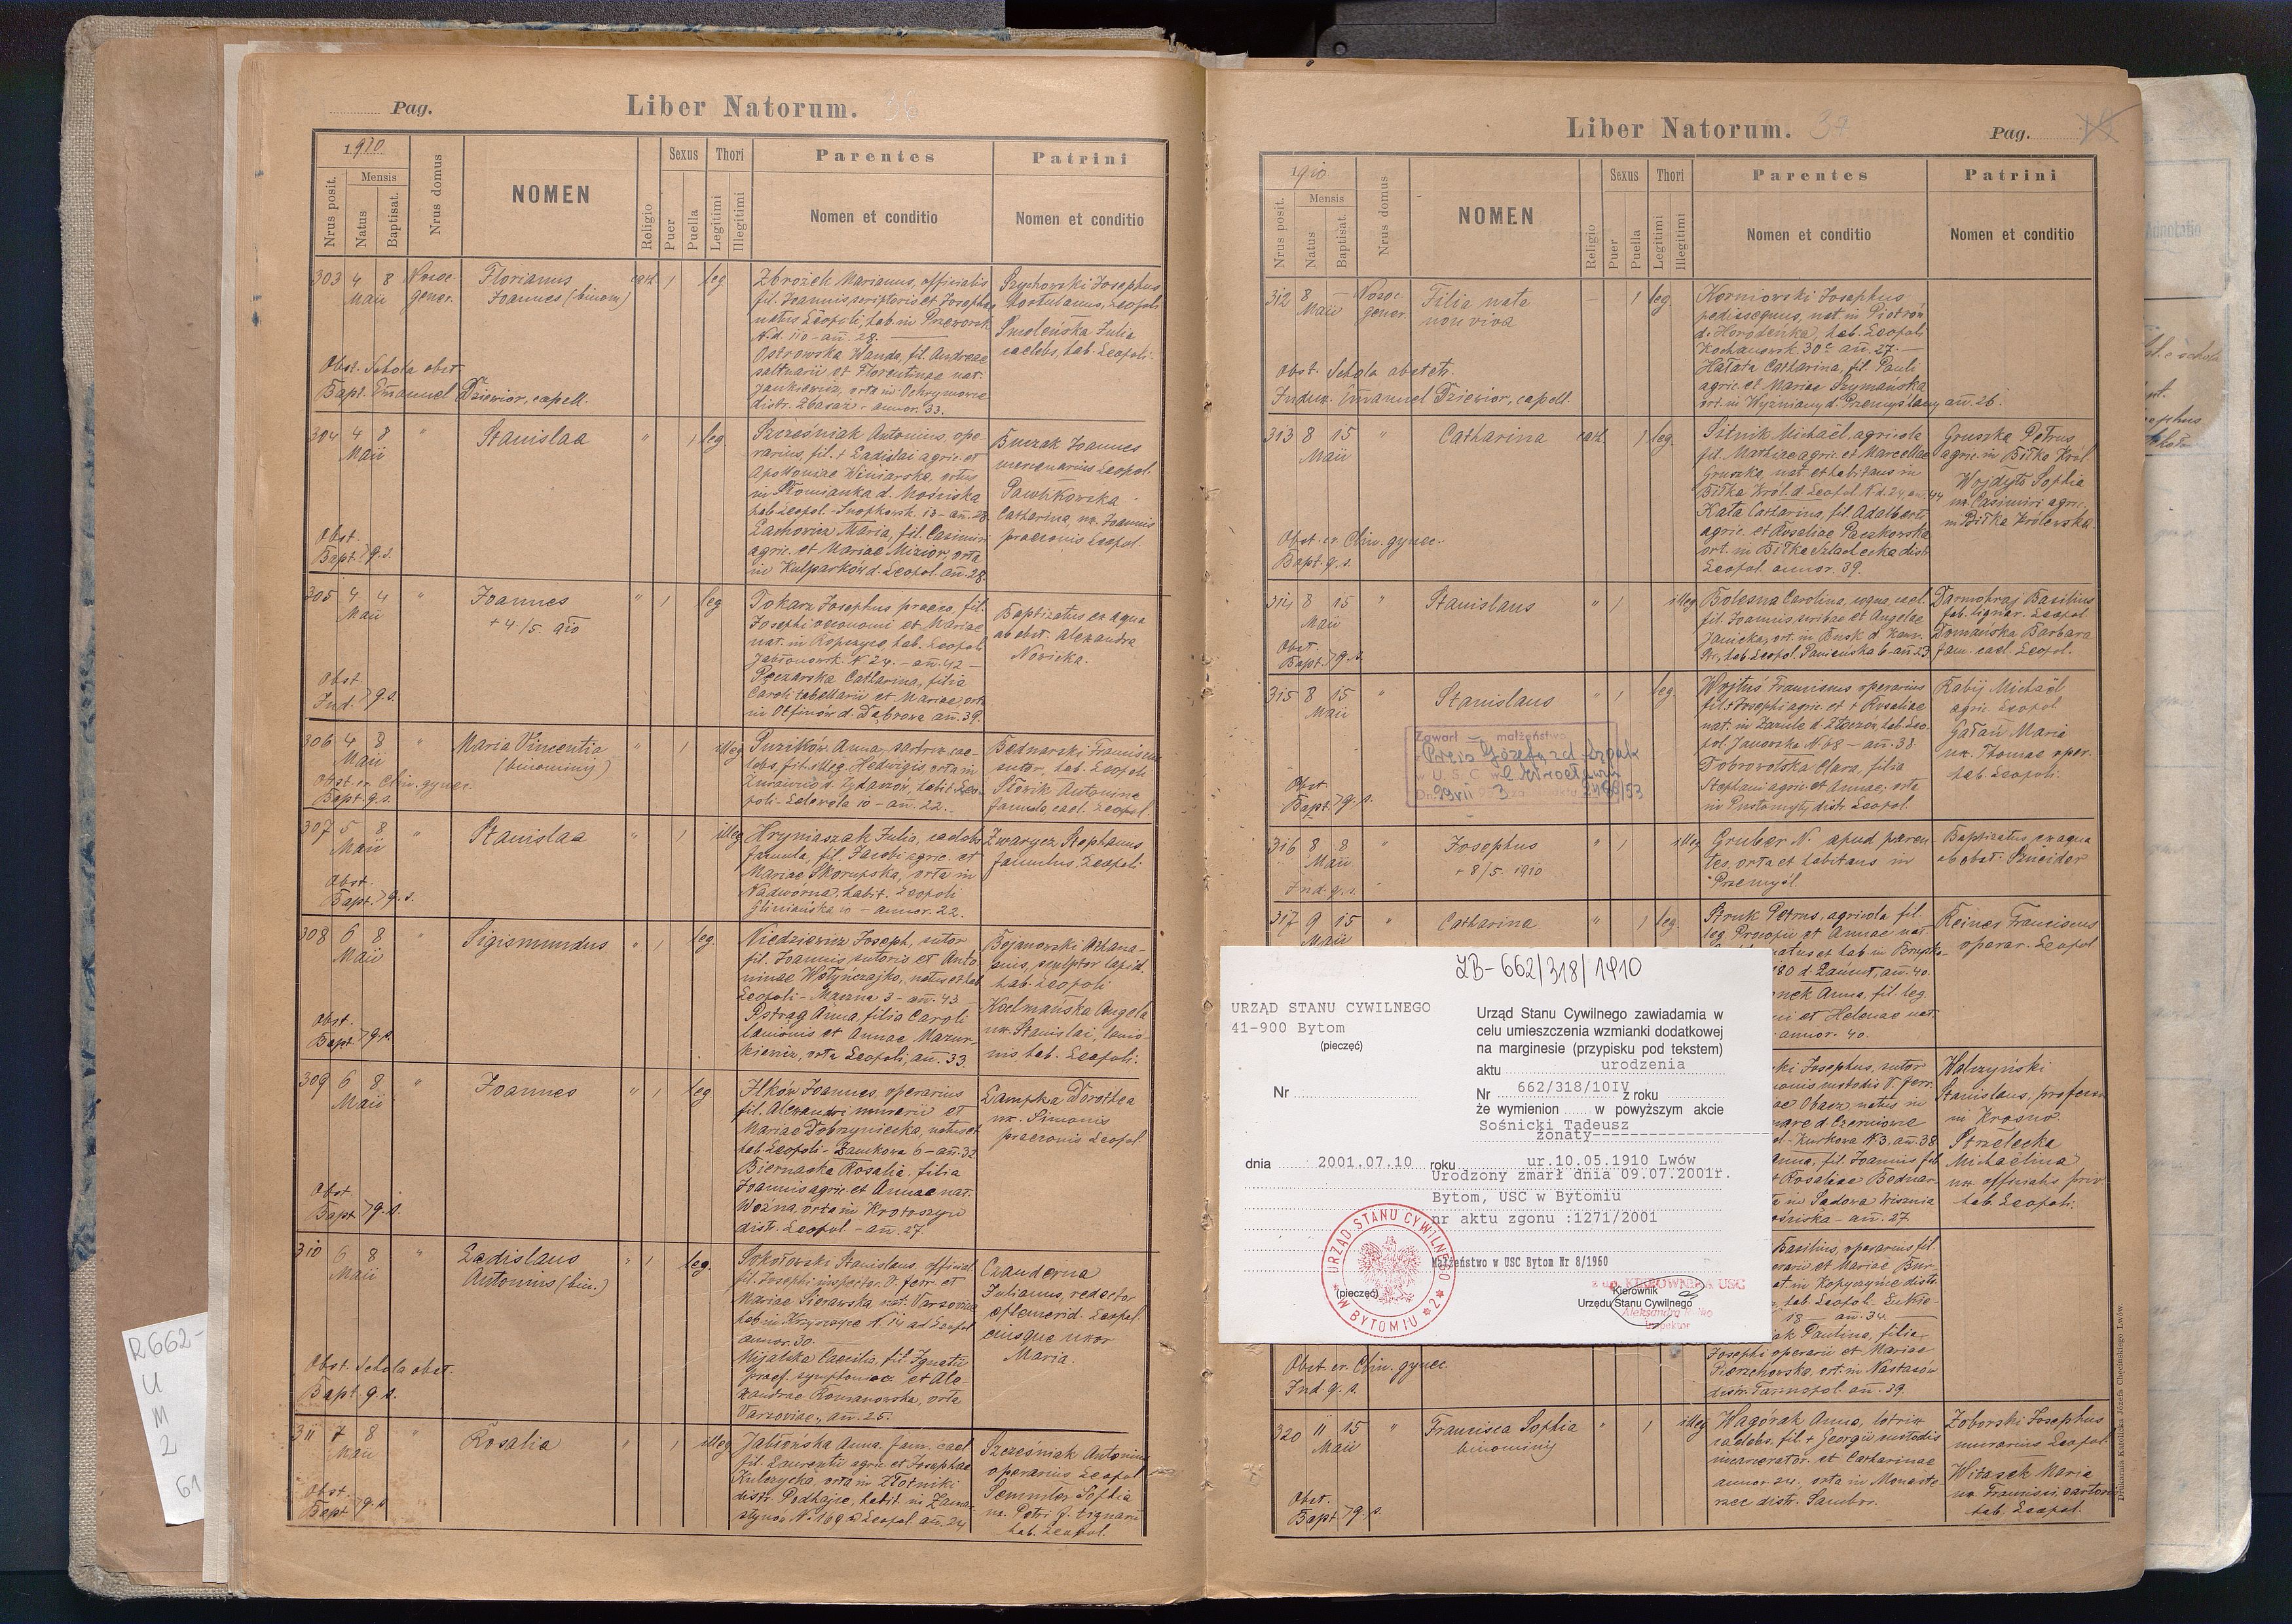 Pag.
Liber Natorum. 36
1910
Nrus posit.
Mensis
Natus
Baptisat.
Nrus domus
NOMEN
Religio
Sexus
Puer
Puella
Thori
Legitimi
Illegitimi
Parentes
Nomen et conditio
Patrini
Nomen et conditio
303 4 8 Maii Nosoc. gener.
Florianus
Joannes (binom)
cath. 1 leg.
Zbrożek Marianus, officialis
fil. Joannis, scriptoris et Josephae
natus Leopoli, hab. in Przeworsk
N.d. 110 - añ. 28.
Ostrowska Wanda, fil. Andreae
saltuarii et Florentinae nat.
Jankiewicz, orta in Ochrymowce
distr. Zbaraż - annor. 33.
Leopoli
Smoleńska Julia
caelebs, hab. Leopoli.
Obst. Schola obst.
Bapt. Emanuel Dziewior, capell.
304 4 8 Maii "
Stanislaa
" 1 leg.
Szcześniak Antonius, ope-
rarius, fil. + Ladislai agric. et
Apolloniae Winiarska, ortus
in Słomianka d. Mościska
hab. Leopol. - Snopkowsk. 13 - añ. 28.
Lachowicz Maria, fil. Casimiri
agric. et Mariae Mizior, orta
in Kulparków d. Leopol. añ. 28.
Burzak Joannes
mercenarius Leopol.
Pawlikowska
Catharina, ux. Joannis
praeconis Leopol.
Obst.
Bapt. > q. s.
305 4 4 Maii "
Joannes
+ 4/5. 910
" 1 leg
Tokarz Josephus praeco, fil.
Josephi oeconomi et Mariae
hab. Leopoli
Jabłonowsk. N 24. - añ. 42 -
Pęczarska Catharina, filia
Caroli tabellarii et Mariae, orta
in Otfinów d. Dąbrowa añ. 39.
Baptizatus ex aqua
ab obst. Alexandra
Nowicka.
Obst.
Ind. > q. s.
306 4 8 Maii "
Maria Vincentia
(binominis)
" 1 illeg
Anna, sartrix, cae-
lebs, fil. illeg. Hedwigis, orta in
Żurawno d. Żydaczów, habit. Leo-
poli - 10 - añ. 22.
Bednarski Franciscus
sutor, hab. Leopoli
Słowik Antonina
famula, cael. Leopol.
Obst. ex Clin. gynec.
Bapt. q. s.
307 5 8 Maii "
Stanislaa
" 1 illeg
Hryniaszak Julia, caelebs
famula, fil. Jacobi agric. et
Mariae Skorupska, orta in
Nadwórna, habit. Leopoli
Gliniańska 10 - annor. 22.
Zwarycz Stephanus
famulus, Leopoli
Obst.
Bapt. > q. s.
308 6 8 Maii "
Sigismundus
" 1 leg.
Niedziewicz Joseph, sutor
fil. Joannis, sutoris et Anto-
ninae Wołyńczajko, natus et hab.
Leopoli - Mączna 3 - añ. 43.
Pstrąg Anna, filia Caroli
lanionis et Annae Mazur-
kiewicz, orta Leopoli, añ. 33.
Bojanowski Athana-
sius, sculptor lapid.
hab. Leopoli
Kozlmańska Angela
ux. Stanislai, lanio-
nis, hab. Leopoli.
Obst.
Bapt. > q. s.
309 6 8 Maii "
Joannes
" 1 leg
Ilków Joannes, operarius
fil. Alexandri murarii et
Mariae Dobrzyniecka, natus et
hab. Leopoli - Zamkowa 6 - añ. 32
Biernacka Rosalia, filia
Joannis agric. et Annae nat.
Woźna, orta in Krotoszyn
distr. Leopol. - añ. 27.
Lampka Dorothea
ux. Simonis
praeconis Leopol.
Obst.
Bapt. > q. s.
310 6 8 Maii "
Ladislaus
Antonius (bin.)
" 1 leg.
Sokołowski Stanislaus, official.
fil. Josephi inspector. V. ferr. et
Mariae Sierawska, nat. Varsoviae
hab. in Krzywczyce N. 14 ad Leopol.
annor. 30.
Mijalska Caecilia, fil. Ignatii
praef. symphoniac. et Ale-
xandrae Romanowska, orta
Varsoviae, añ. 25.
Czanderna
Julianus, redactor
ephemerid. Leopol.
eiusque uxor
Maria.
Obst. Schola obst.
Bapt. q. s.
311 7 8 Maii "
Rosalia
" 1 illeg
Jabłońska Anna, fam. cael.
fil. Laurentii agric. et Josephae
Kulczycka, orta in Złotniki
distr. Podhajce, habit. in Zama-
rstynów N. 169 d. Leopol. añ. 24
Szcześniak Antonius
operarius Leopol.
Semmler Sophia
ux. Petri f. lignarii
hab. Leopol.
Obst.
Bapt. > q. s.
R 662-
U
M
2
61
Liber Natorum. 37
Pag.
1910
Nrus posit.
Mensis
Natus
Baptisat.
Nrus domus
NOMEN
Religio
Sexus
Puer
Puella
Thori
Legitimi
Illegitimi
Parentes
Nomen et conditio
Patrini
Nomen et conditio
312 8 - Maii Nosoc. gener.
Filia nata
non viva
- 1 leg
Korniowski Josephus
pedissequus, nat. in Piotrów
d. Horodenka, hab. Leopoli
Kochanowsk. 30c añ. 27. -
Hałata Catharina, fil. Pauli
agric. et Mariae Szymańska
ort. in Wyżniany d. Przemyślany añ. 26.
Obst. Schola obstetr.
Indux. Emanuel Dziewior, capell.
313 8 15 Maii "
Catharina
cath. 1 leg.
Sitnik Michaël, agricola
fil. Mathiae agric. et Marcellae
Gruszka, nat. et habitans in
Biłka Król. d. Leopol. N.d. 24, an. 44
Kata Catharina, fil. Adalberti
agric. et Rosaliae Paczkowska
ort. in Biłka Szlachecka distr.
Leopol. annor. 39.
Gruszka Petrus
agric. in Biłka Król.
Wojdyło Sophia
ux. Casimiri agric.
in Biłka Królewska.
Obst. ex Clin. gynec.
Bapt. q. s.
314 8 15 Maii "
Stanislaus
" 1 illeg
Bolesna Carolina, coqua, cael.
fil. Joannis, scribae et Angelae
Janicka, ort. in Busk d. Kam.
Str., hab. Leopol. Panieńska 6 - añ. 23
Darmohraj Basilius
fab. lignar. Leopol.
Domańska Barbara
fam. cael. Leopol.
Obst.
Bapt. > q. s.
315 8 15 Maii "
Stanislaus
" 1 leg.
Wojtuś Franciscus operarius
fil. + Josephi agric. et + Rosaliae
nat. in Zazule d. Złoczów, hab. Leo-
pol. Janowska N 68 - añ. 38.
Dobrowolska Clara, filia
Stephani agric. et Annae, orta
in Pustomyty, distr. Leopol.
Kabij Michaël
agric. Leopol
Gałan Maria
ux. Thomae oper.
hab. Leopoli.
Zawarł małżeństwo
w U. S. C. w Wrocławiu
Obst.
Bapt. > q. s.
316 8 8 Maii "
Josephus
+ 8/5. 1910
" 1 illeg
Gruber N. apud paren-
tes, orta et habitans in
Przemyśl.
Baptizatus ex aqua
ab obst. Szneider
Ind. q. s.
317 9 15 Maii "
Catharina
" 1 leg.
Struk Petrus, agricola fil.
leg. Procopii et Annae nat.
natus et hab. in
180 d. Łańcut, añ. 40.
Anna, fil. leg.
et Helenae nat.
annor. 40.
Reiner Franciscus
operar. Leopol
ZB-662/318/1910
URZĄD STANU CYWILNEGO
41-900 Bytom
(pieczęć)
Nr
dnia 2001.07.10 roku
Urząd Stanu Cywilnego zawiadamia w
celu umieszczenia wzmianki dodatkowej
na marginesie (przypisku pod tekstem)
aktu urodzenia
Nr 662/318/10IV z roku
że wymienion w powyższym akcie
Sośnicki Tadeusz
żonaty
ur.10.05.1910 Lwów
Urodzony zmarł dnia 09.07.2001r.
Bytom, USC w Bytomiu
nr aktu zgonu :1271/2001
Małżeństwo w USC Bytom Nr 8/1960
(pieczęć)
URZĄD STANU CYWILNEGO * W BYTOMIU * 2 *
z up. KIEROWNIKA USC
Kierownik
Urzędu Stanu Cywilnego
Inspektor
Josephus, sutor
custodis V. ferr.
natus in
Kurkowa N 3, añ. 38.
Anna, fil. Joannis fab.
Rosaliae Bednar-
in Sadowa Wisznia
añ. 27.
Walczyński
Stanislaus, professor
in Krosno
Strzelecka
Michaëlina
ux. officialis priv.
hab. Leopoli.
Basilius, operarius fil.
et Mariae Bur-
nat. in Kopyczyńce distr.
hab. Leopoli - Łukie-
18 - añ. 34. -
Paulina, filia
Josephi operarii et Mariae
Pierzchowska, ort. in Nastasów
distr. Tarnopol. añ. 39.
Obst. ex Clin. gynec.
Ind. q. s.
320 11 15 Maii "
Francisca Sophia
binominis
" 1 illeg
Wagórak Anna, lotrix
caelebs, fil. + Georgii custodis
incarcerator. et Catharinae
annor. 24. orta in Monaste-
rzec distr. Sambor.
Zoborski Josephus
murarius Leopol.
Witasek Maria
ux. Francisci, sartoris
hab. Leopol.
Obst.
Bapt. > q. s.
Drukarnia Katolicka Józefa Chęcińskiego Lwów.